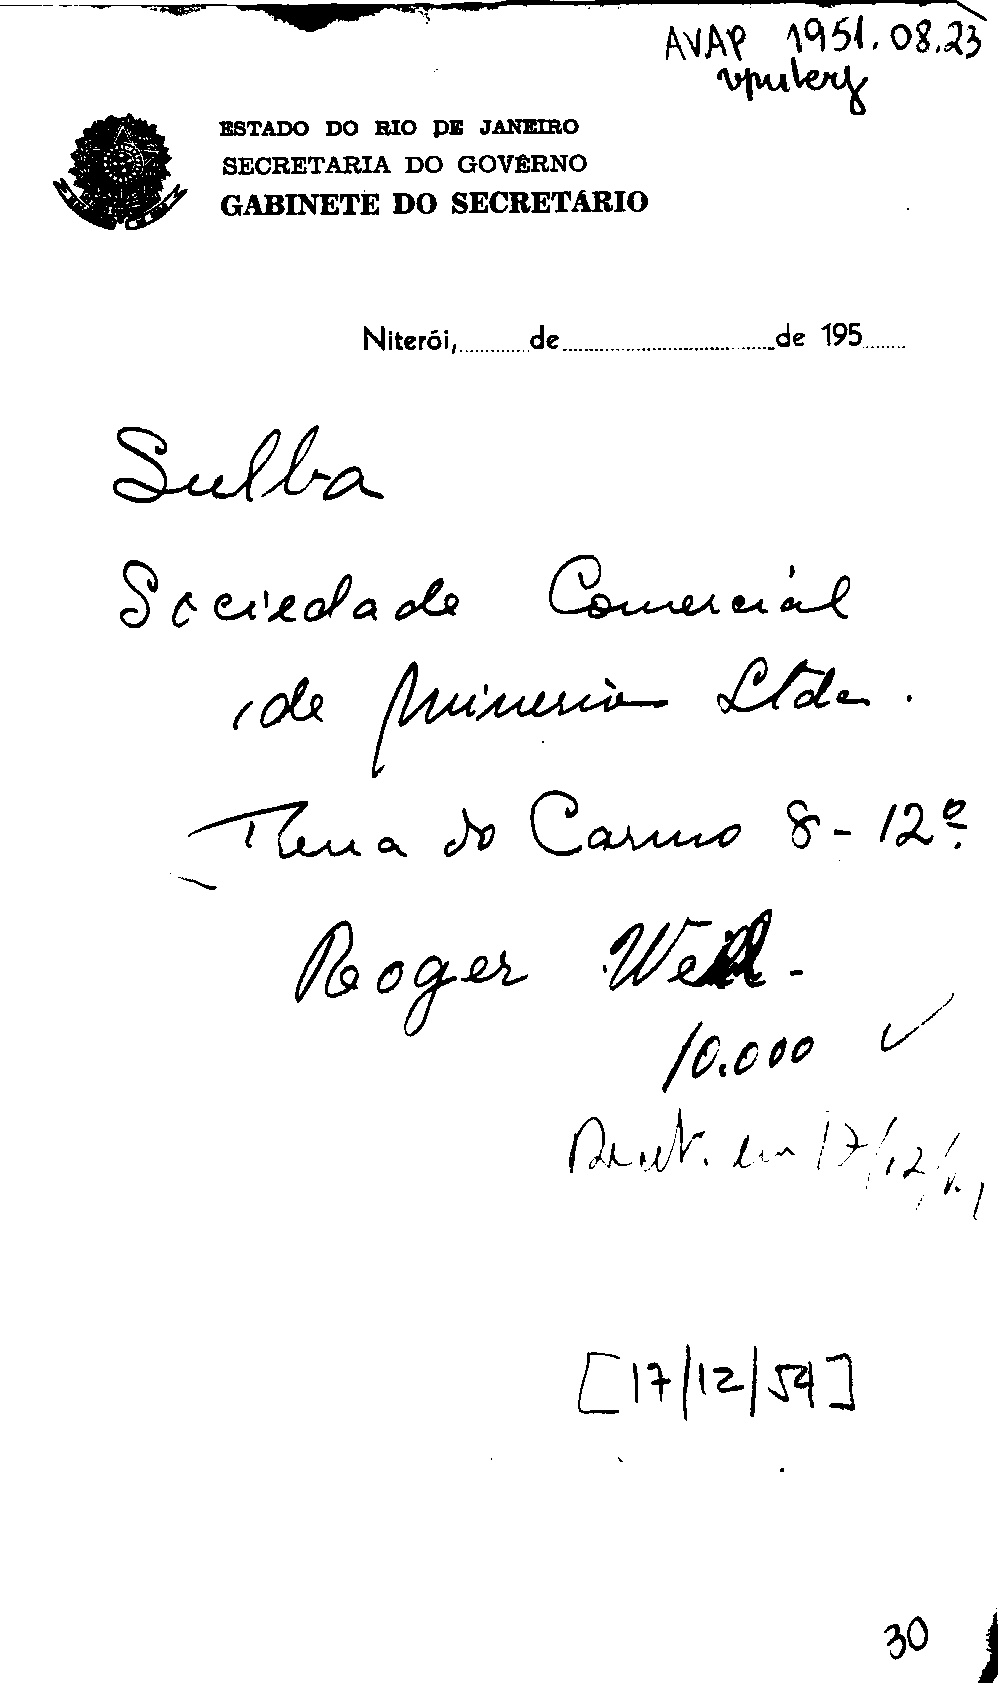 AVAP 1951.08.23
ESTADO DO RIO DE JANEIRO
SECRETARIA DO GOVÊRNO
GABINETE DO SECRETÁRIO
Niterói, de de 195
Sulba
Sociedade Comercial
de Mineria Ltda.
do Carmo 8 - 12º
Roger Weill -
10.000 ✓
em 17/12/
[17/12/54]
30